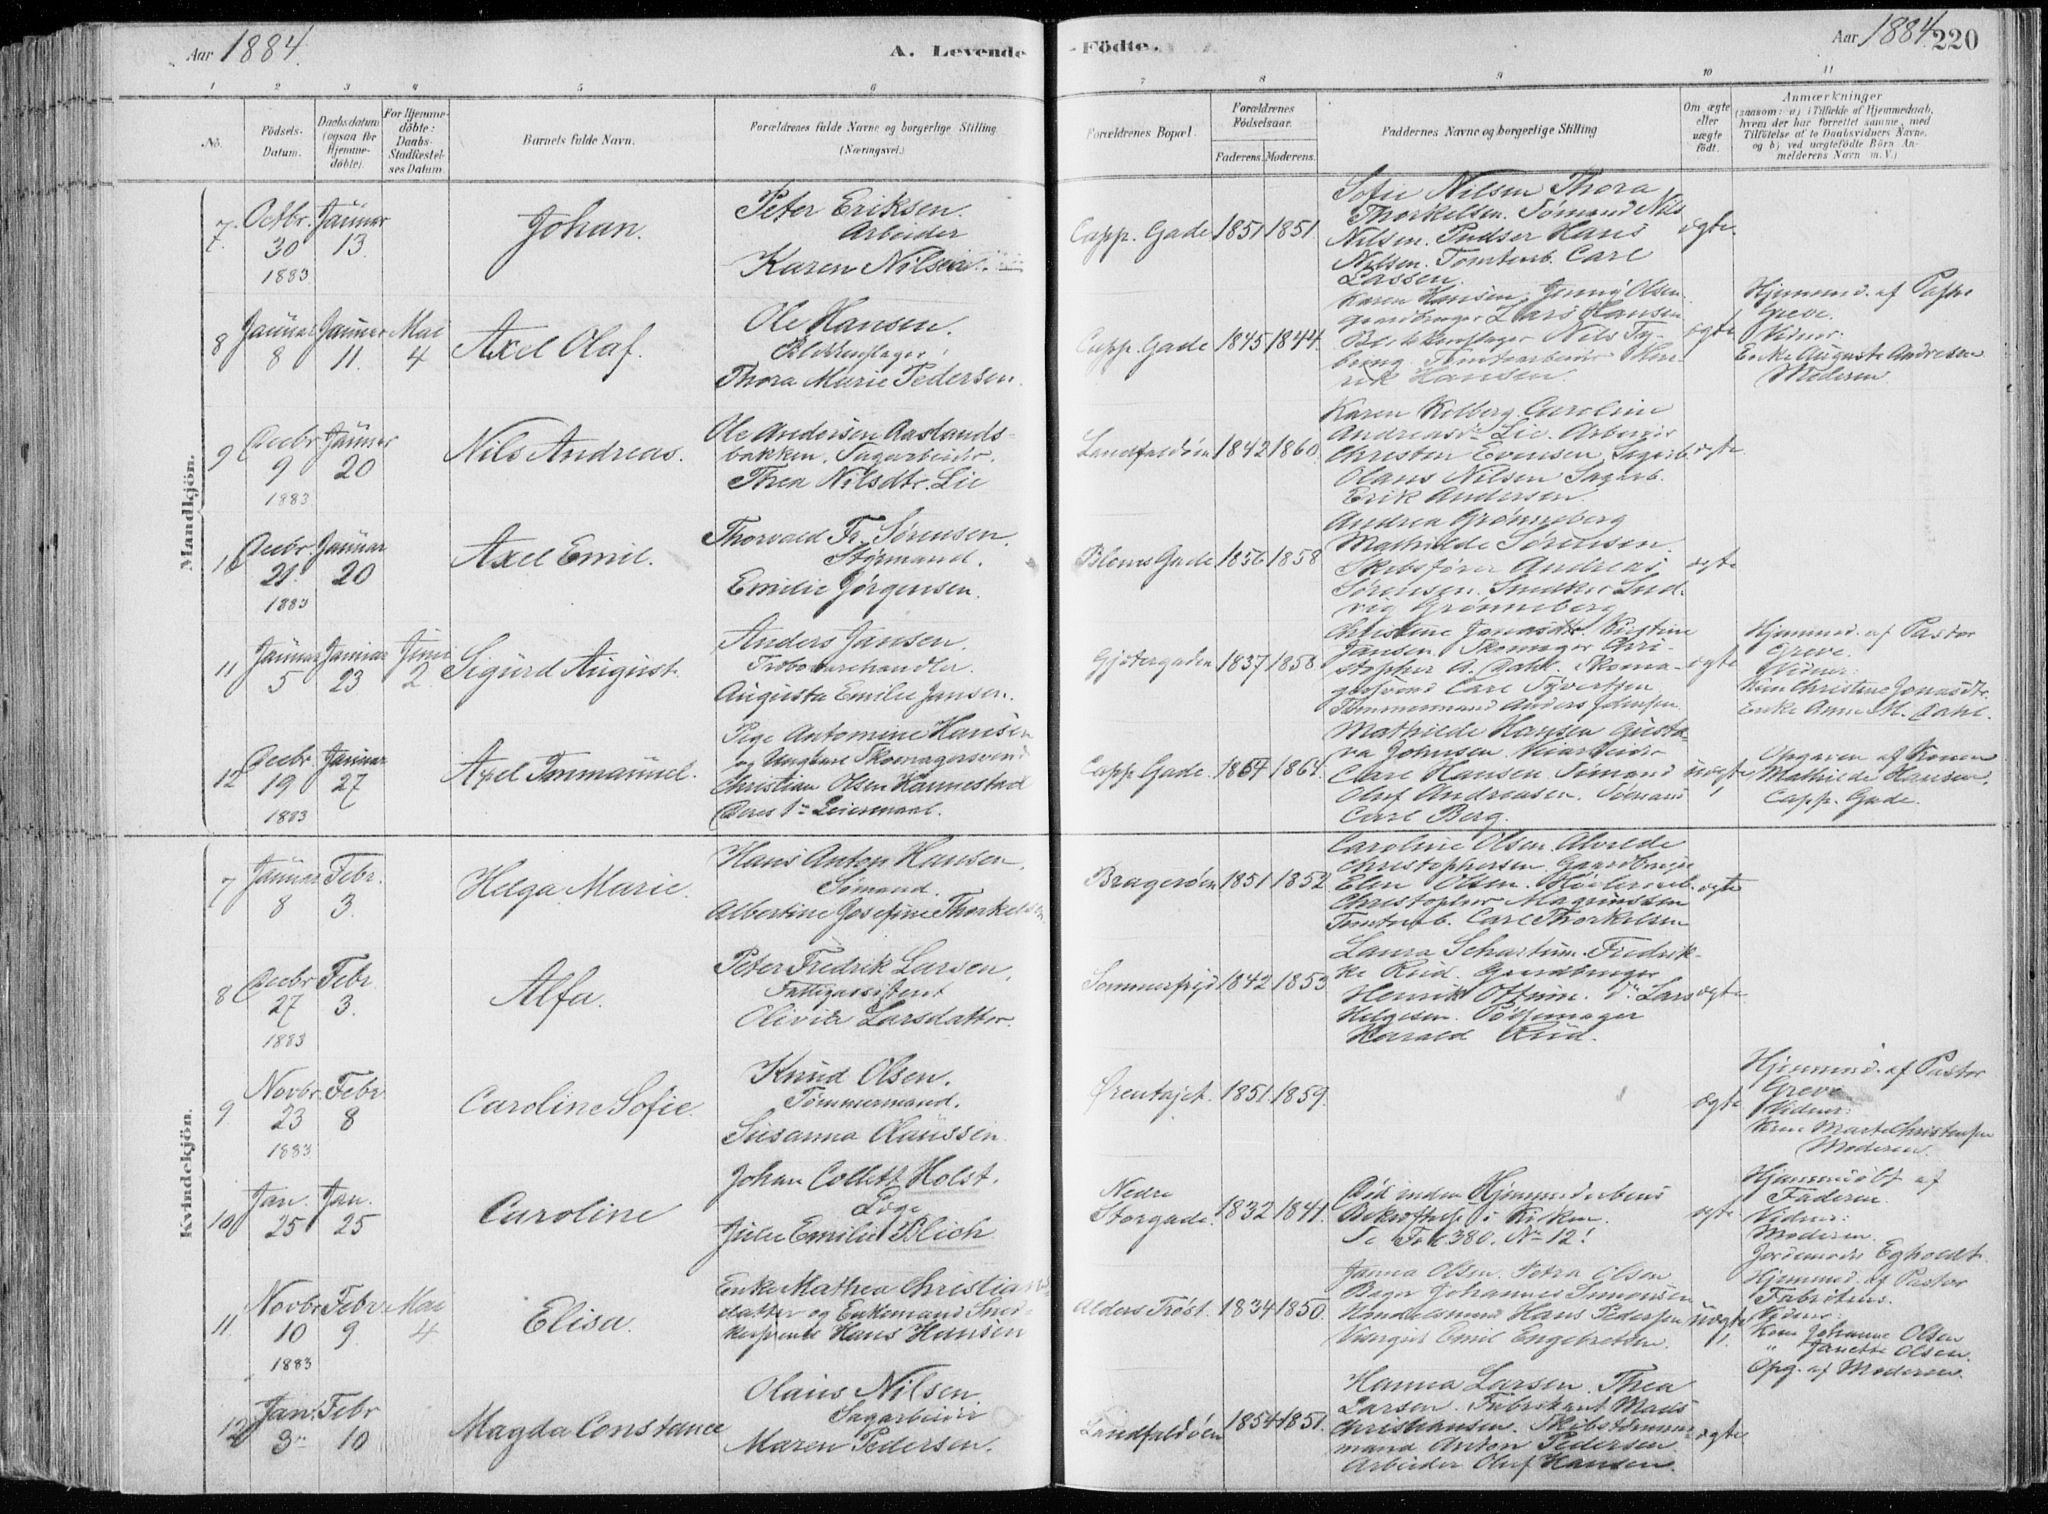 Aar 1884.
A. Levende
-Födte.
Aar 1884
220
1 2 3 4 5 6 7 8 9 10 11
No.
Födsels-
Datum.
Daabsdatum
(ogsaa for
Hjemme-
döbte).
For Hjemme-
döbte:
Daabs-
Stadfæstel-
ses Datum.
Barnets fulde Navn.
Forældrenes fulde Navne og borgerlige Stilling
(Næringsvei.)
Forældrenes Bopæl.
Forældrenes
Födselsaar.
Faderens. Moderens.
Faddernes Navne og borgerlige Stilling
Om ægte
eller
uægte
født.
Anmærkninger
(saasom: a) i Tilfælde af Hjemmedaab,
hvem der har forrettet samme, med
Tilföielse af to Daabsvidners Navne,
og b) ved uægtefödte Börn An-
melderens Navn m. V.)
Mandkjön.
7
Octbr.
30
1883
Januar
13.
Johan.
Peter Eriksen.
Arbeider
Karen Nilsen.
Capp. Gade
1851
1851.
Sofie Nilsen Thora
Thorkelsen. Sømand Nils
Nilsen. Pudser Hans
Nilsen. Tomtearb. Carl
Larssen.
ægte.
8
Januar
8
Januar
11.
Mai
4
Axel Olaf.
Ole Hansen.
Blikkenslager
Thora Marie Pedersen.
Capp. Gade
1845
1844.
Karen Hansen, Jenny Olsen
Gaardbruger Lars Hansen
Blikkenslager Nils Ty-
bring. Tomtearbeider Hen
rik Hansen.
ægte
Hjemmed. af Past.
Greve.
Vidner:
Enke Auguste Andresen
Moderen.
9
Decbr
9
1883
Januar
20
Nils Andreas.
Ole Andersen Aaslands-
bakken. Sagarbeider.
Thea Nilsdtr. Lie
Landfaldøen
1842
1860.
Karen Kolberg. Caroline
Andreasdr. Lie. Arbeider
Christen Evensen, Sagarb.
Olaus Nilsen Sagarb.
Erik Andersen.
ægte
10
Decbr.
21.
1883
Januar
20
Axel Emil.
Thorvald Fr. Sørensen.
Styrmand.
Emilie Jørgensen.
Bloms Gade
1856
1858
Andrea Grønneberg
Mathilde Sørensen.
Skibsfører Andreas
Sørensen. Snedker Lud-
vig Grønneberg
ægte
11
Januar
5
Januar
23
Juni
2.
Sigurd August.
Anders Jansen.
Augusta Emilie Jansen.
Gjetergaden
1837
1858.
Christine Jonasdtr. Kirstine
Jansen. Skomager Chri-
stopher A. Dahl. Skoma-
gersvend Carl Syvertsen
Tømmermand Anders Johnsen
ægte
Hjemmed. af Pastor
Greve.
Vidner:
Kone Christine Jonasdtr.
Enke Anne M. Dahl.
12
Decbr
19
1883
Januar
27
Axel Emmanuel.
Pige Antomine Hansen
og Ungkarl Skomagersvend
Christian Olsen Hannestad
Deres 1ste Leiermaal.
Capp. Gade.
1864
1864.
Mathilde Hansen Gusta-
va Johnsen.
Carl Hansen. Sømand
Oluf Andreasen. Sømand
Carl Berg.
uægte
1.
Opgaven af Konen
Mathilde Hansen.
Capp. Gade.
Kvindekjön.
7
Januar
8
Febr.
3.
Helga Marie.
Hans Anton Hansen.
Sømand.
Albertine Josefine Thorkelsen.
Bragerøen
1851
1852
Caroline Olsen. Alvilde
Christophersen Gaardbruger
Elen Olsen.
Christopher Magnussen
Tomtearb. Carl Thorkelsen
ægte
8
Decbr
27
1883
Febr.
3.
Alfa.
Peter Fredrik Larsen.
Fattigassistent
Olivia Larsdatter.
Sommerfryd
1842
1853
Laura Schartum. Fredrik-
ke Riid. Gaardbruger
Henrik Ottum. Do Lars
Helgesen. Pølsemager
Harald Riid.
ægte
9
Novbr.
23
1883
Febr
8
Caroline Sofie.
Knud Olsen.
Tømmermand.
Susanna Olaussen.
Ørentøjet.
1851
1859.
ægte
Hjemmed. af Pastor
Greve
Vidner:
Kone Marte Christensen
Moderen.
10
Jan.
25
Jan.
25
Caroline
Johan Collett Holst.
Læge
Julie Emilie Blich
Nedre
Storgade.
1832
1841.
Død inden Hjemmedaabens
Bekræftelse i Kirken.
Se Fol 380. No 12!
ægte.
Hjemmedøbt af
Faderen.
Vidner:
Moderen.
Jordemoder Egholdt.
11
Novbr
10
1883
Febr
9
Mai
4
Elisa.
Enke Mathea Christians-
datter og Enkemand Sned-
kersvend Hans Hansen
Alders Trøst.
1834
1850.
Janna Olsen. Petra Olsen
Bager Johannes Simonsen
Handelsmand Hans Pedersen
Emil Engebretsen.
uægte
1.
Hjemmed. af Pastor
Fabritius.
Vidner:
Kone Johanne Olsen
" Janette Olsen.
Opg. af Moderen.
12
Jan.
3
Febr
10
Magda Constance
Olaus Nilsen
Sagarbeider
Maren Pedersen.
Landfaldøen
1854
1851.
Hanna Larsen. Thea
Larsen. Fabrikant Mads
Christiansen. Skibstømmer-
mand Anton Pedersen
Arbeider Oluf Hansen.
ægte